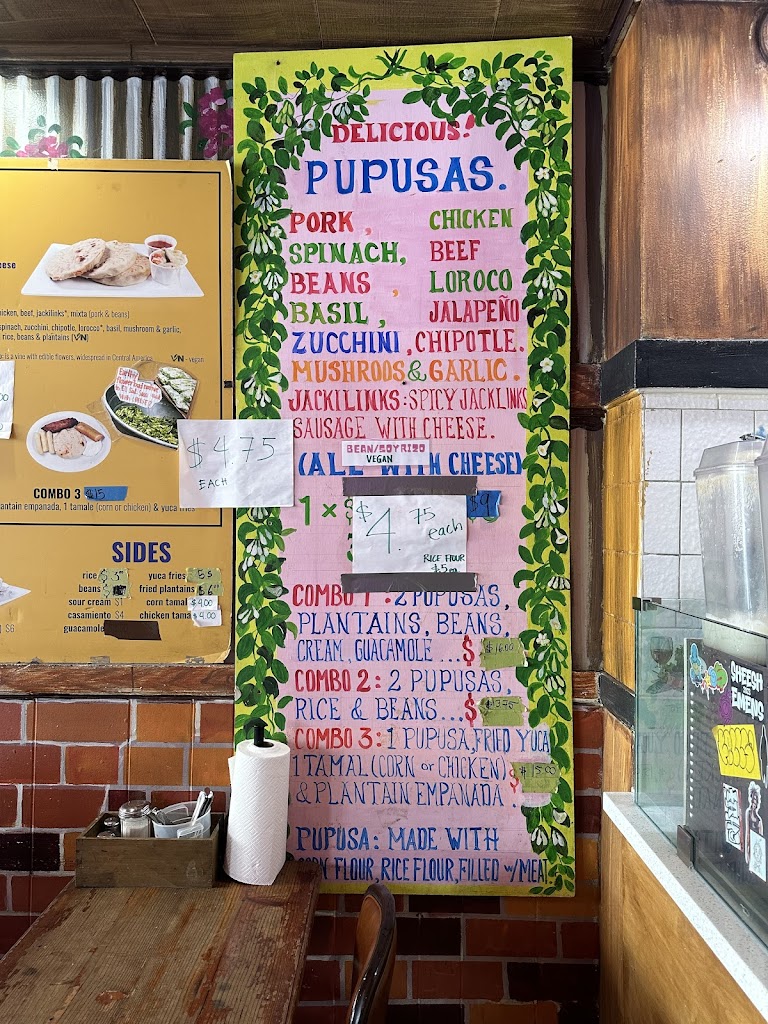 DELICIOUS!
PUPUSAS.
PORK, CHICKEN
SPINACH, BEEF
BEANS, LOROCO
BASIL, JALAPEÑO
ZUCCHINI, CHIPOTLE.
MUSHROOS & GARLIC.
JACKILINKS: SPICY JACKLINKS
SAUSAGE WITH CHEESE.
BEAN/SOYRIZO
VEGAN
(ALL WITH CHEESE)
1 × $
$9
$4.75
each
RICE FLOUR
COMBO 1: 2 PUPUSAS,
PLANTAINS, BEANS,
CREAM, GUACAMOLE ...$ $16.00
COMBO 2: 2 PUPUSAS,
RICE & BEANS...$
COMBO 3: 1 PUPUSA, FRIED YUCA
1 TAMAL (CORN or CHICKEN) $ $15.00
& PLANTAIN EMPANADA.
PUPUSA: MADE WITH
CORN FLOUR, RICE FLOUR, FILLED W/ MEAT
$4.75
EACH
icken, beef, jackilinks*, mixta (pork & beans)
spinach, zucchini, chipotle, lorocco*, basil, mushroom & garlic,
rice, beans & plantains (VN)
is a vine with edible flowers, widespread in Central America
VN - vegan
COMBO 3 $15
antain empanada, 1 tamale (corn or chicken) & yuca fries
SIDES
rice $3 yuca fries $5
beans $ fried plantains $6
sour cream $1 corn tamal $4.00
casamiento $4 chicken tamal $4.00
guacamole
$6
SHEESH
EMENS